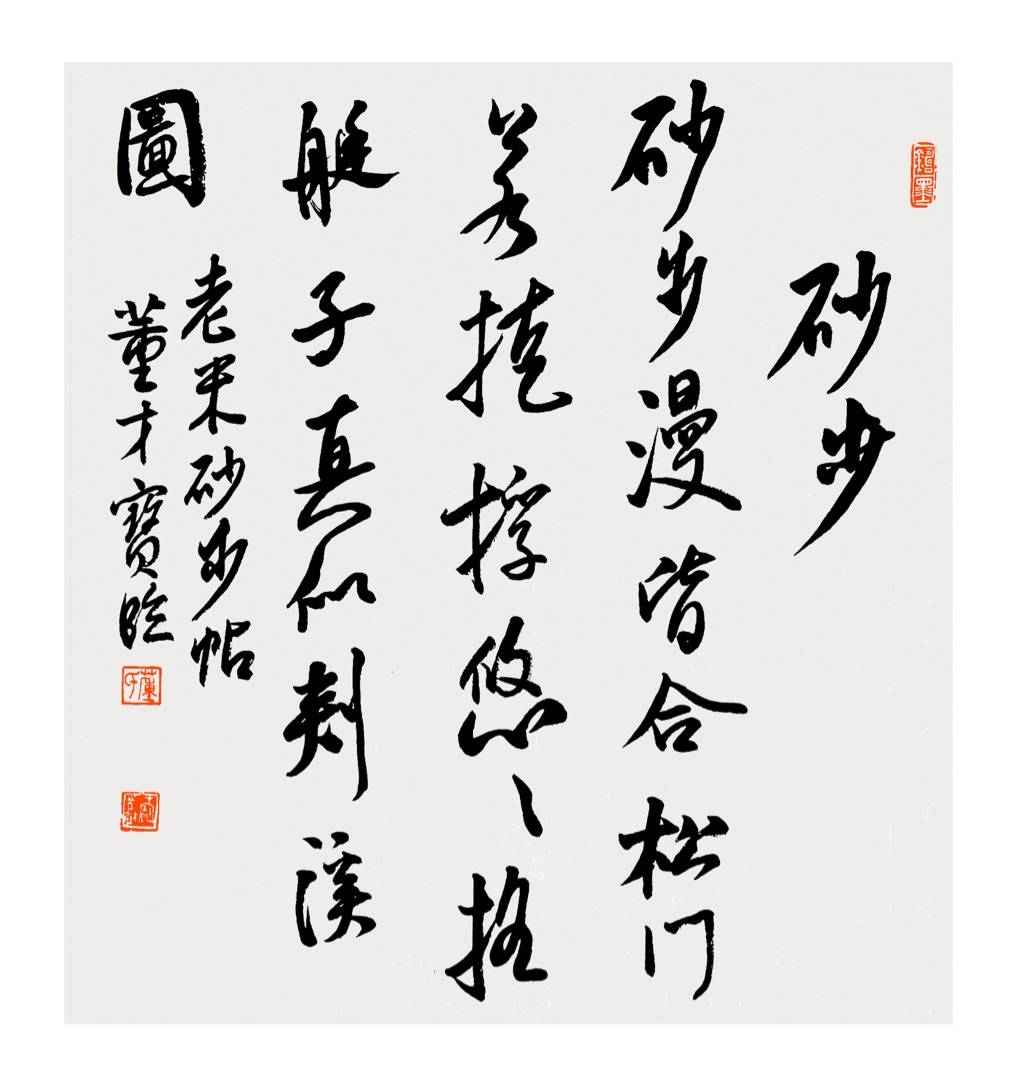 砂步
砂步漫皆合松門
若掩桴悠〻搖
艇子真似剡溪
圖
老米砂步帖
董才寶臨